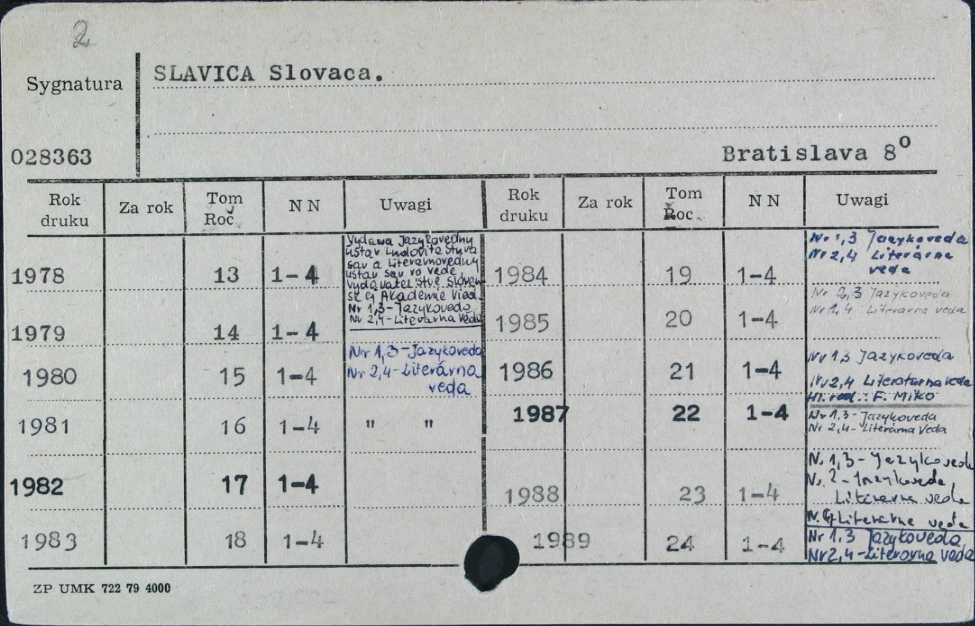 2
SLAVICA Slovaca.
Sygnatura
028363
Bratislava 8º
Rok druku Za rok Tom Roč. NN Uwagi Rok druku Za rok Tom Roc. NN Uwagi
1978 13 1-4
Vydawa Jazykovedný
ústav Ludovíta Štúra
sav a Literárnovedný
ústav sav vo vede
vydavatel'stvé sloven
sk ej Akadémie vied
Nr 1,3-Jazykoveda
Nr 2,4-Literárna veda
1979 14 1-4
1980 15 1-4
Nr 1,3-Jazykoveda
Nr 2,4-Literárna
veda
1981 16 1-4 " "
1982 17 1-4
1983 18 1-4
1984 19 1-4
Nr 1,3 Jazykoveda
Nr 2,4 Literárna
veda
1985 20 1-4
Nr 2,3 Jazykoveda
Nr 1,4 Literárna veda
1986 21 1-4
Nr 1,3 Jazykoveda
Nr 2,4 Literaturna veda
Hl. red.: F. Miko
1987 22 1-4
Nr 1,3-Jazykoveda
Nr 2,4-Literárna Veda
1988 23 1-4
N. 1,3-Jazykoveda
N. 2-Jazykoveda
Literarna veda
N. 4 Literarne veda
1989 24 1-4
Nr 1,3 Jazykoveda
Nr 2,4-Literarna veda
ZP UMK 722 79 4000